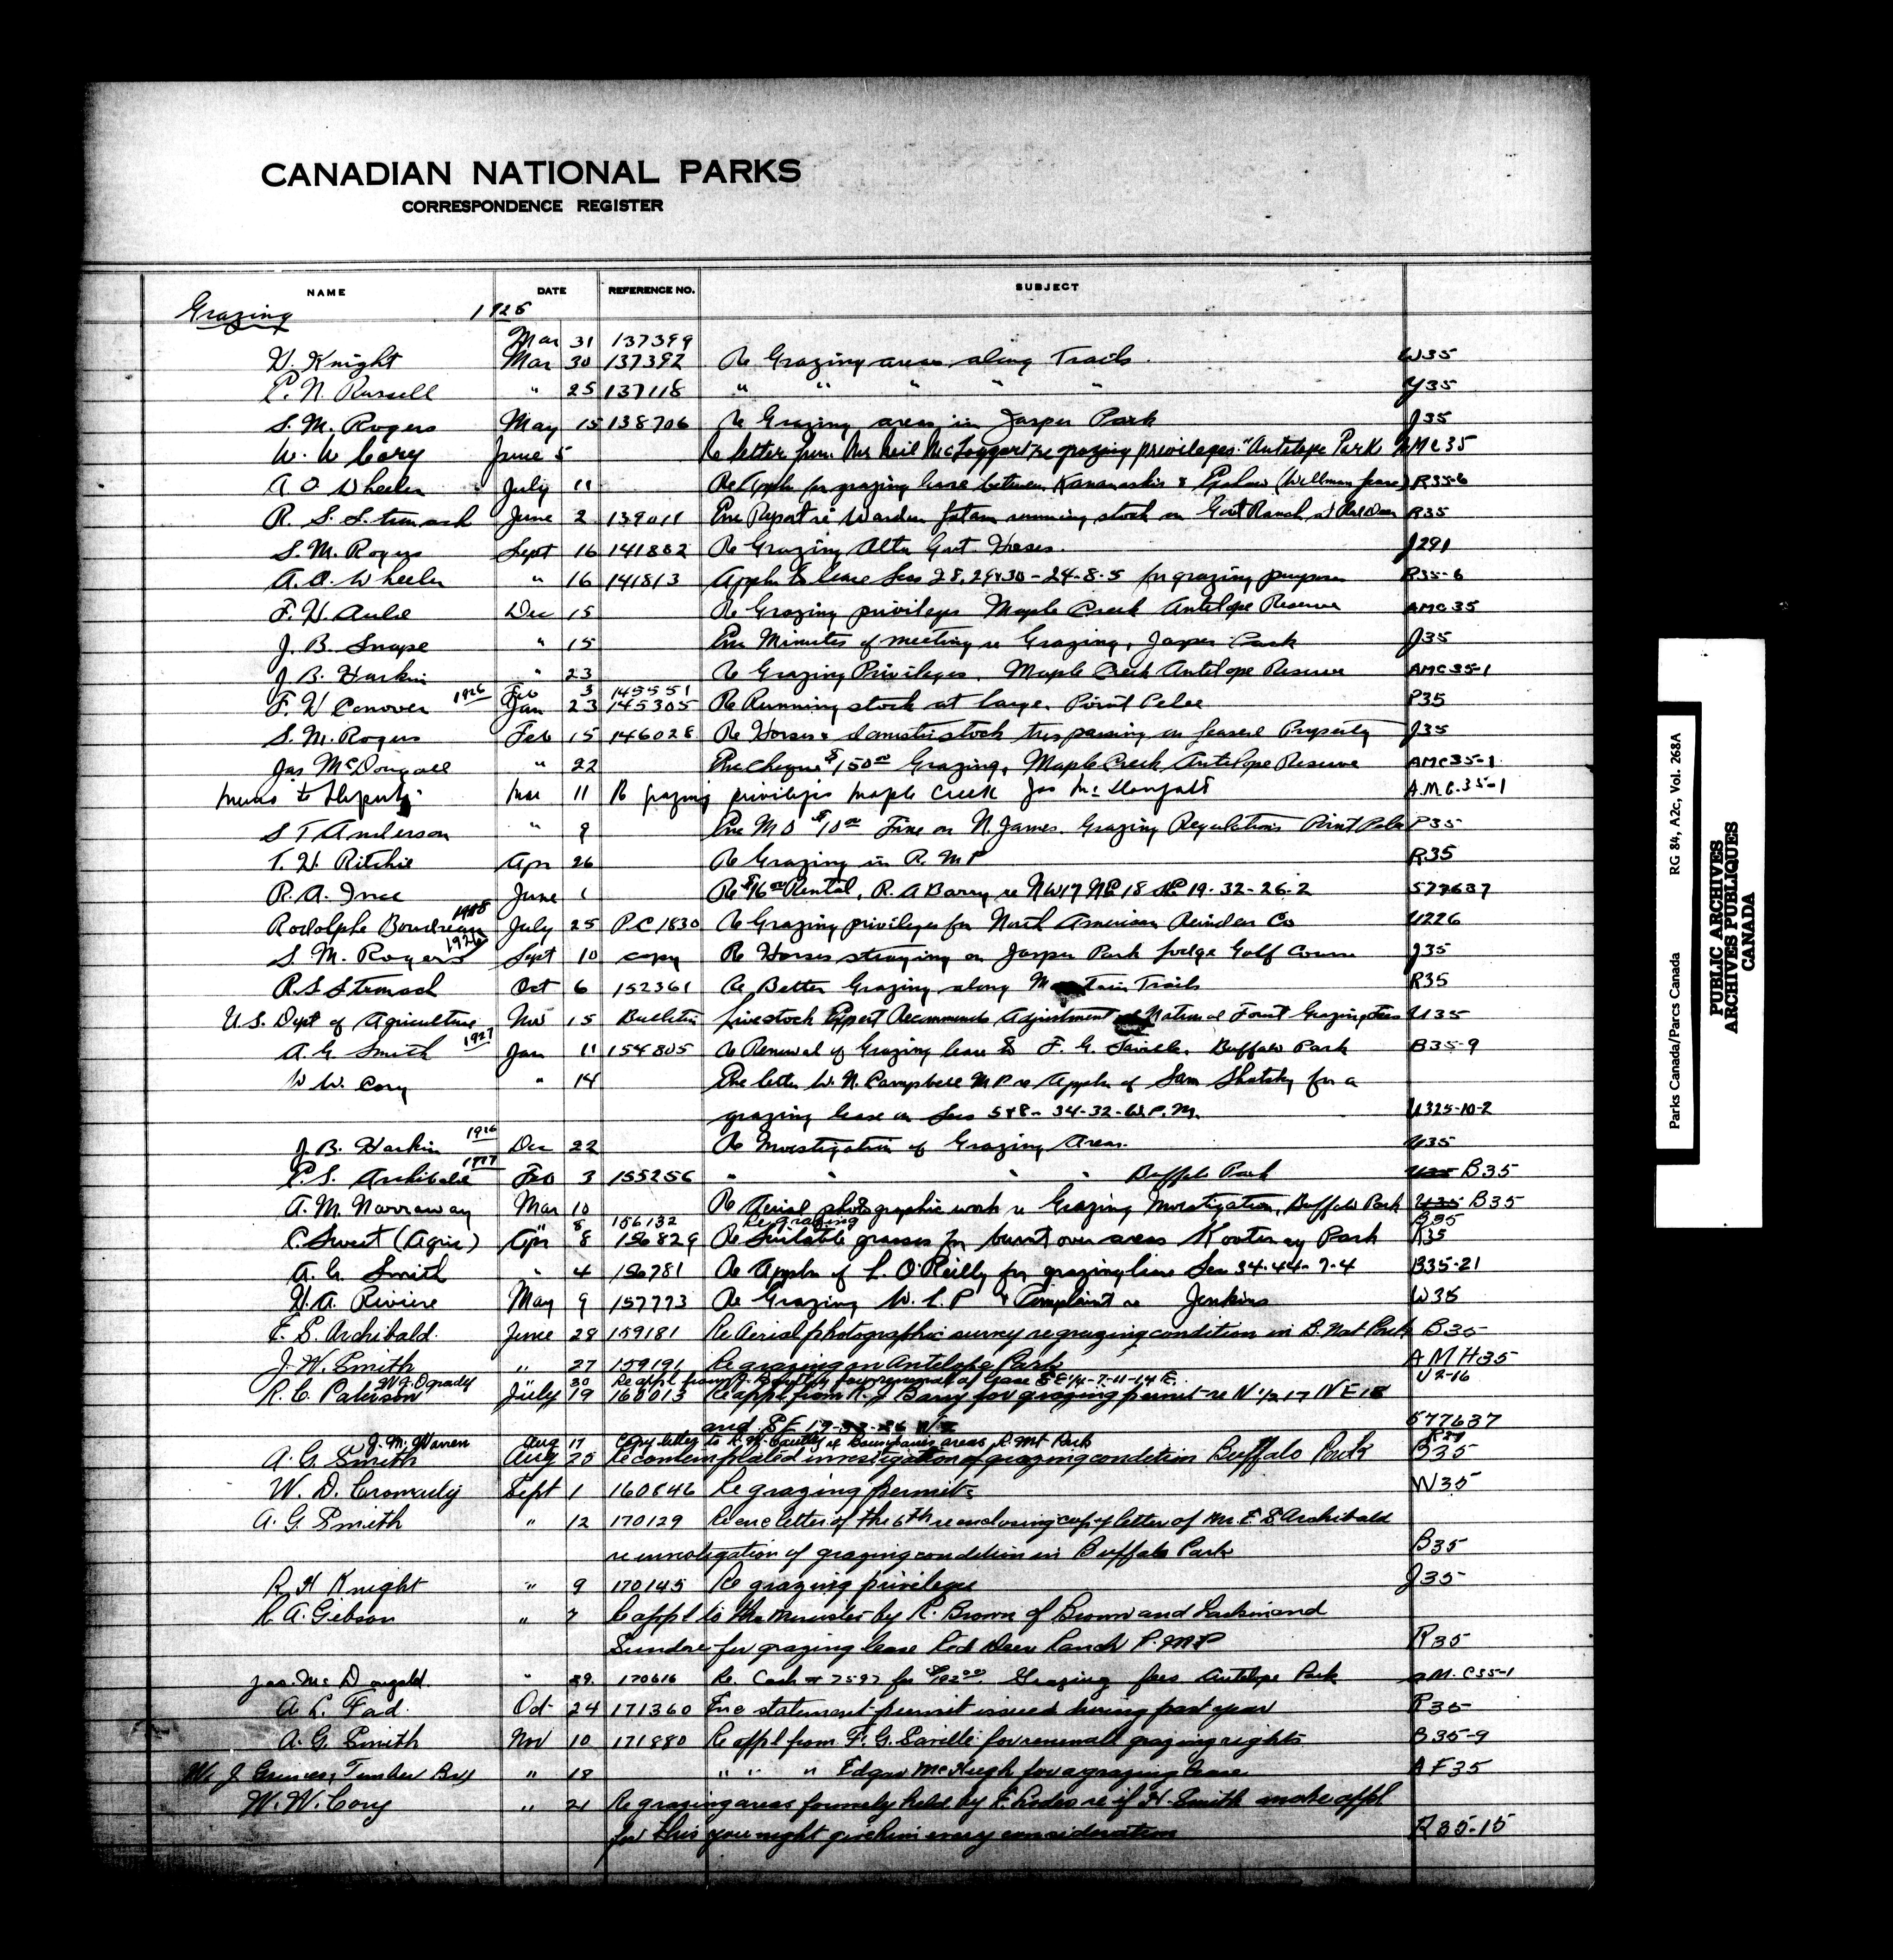 CANADIAN NATIONAL PARKS
CORRESPONDENCE REGISTER
NAME DATE REFERENCE NO. SUBJECT
Grazing 1925
Mar 31 137399
H. Knight Mar 30 137392 Re Grazing areas along Trails. W35
P. N. Russell " 25 137118 " " " " " Y35
S. M. Rogers May 15 138706 Re Grazing areas in Jasper Park J35
W. W. Cory June 5 Re letter from Mr Neil McTaggart re grazing privileges "Antelope Park AMC35
A O Wheeler July 11 Re Appln for grazing lease between Kananaskis & (Wellman lease) R35-6
R. S. Stronach June 2 139011 Enc Report re Warden running stock on Govt Ranch at Red Deer R35
S. M. Rogers Sept 16 141882 Re Grazing Alta Govt Horses. J291
A. O. Wheeler " 16 141813 Appln to lease Secs 28, 29 & 30 - 24-8-5 for grazing purposes R35-6
F. H. Auld Dec 15 Re Grazing privileges Maple Creek Antelope Reserve AMC35
J. B. Snape " 15 Enc Minutes of meeting re Grazing, Jasper Park J35
J B. Harkin " 23 Re Grazing Privileges. Maple Creek Antelope Reserve AMC35-1
1926 Feb 3 145551
F. H Conover Jan 23 145305 Re Running stock at large. Point Pelee P35
S. M. Rogers Feb 15 146028 Re Horses & domestic stock trespassing on leased Property J35
Jas McDougall " 22 Enc cheque $150.00 Grazing, Maple Creek Antelope Reserve AMC35-1
Memo to Deputy Mar 11 Re grazing privileges Maple Creek Jas A.M.C.35-1
S T Anderson " 9 Enc M O $10.00 Fine on N. James. Grazing Regulations Point Pelee P35
T. H. Ritchie Apr 26 Re Grazing in R. M P R35
R. A. Ince June 1 Re $16.00 Rental, R. A Barry re NW17 NE 18 SE 19-32-26-2 577637
Rodolphe Boudreau 1926 July 25 PC 1830 Re Grazing privileges for North American Reindeer Co U226
S. M. Rogers 1926 Sept 10 copy Re Horses straying on Jasper Park Lodge Golf Course J35
R. S Stronach Oct 6 152361 Re Better Grazing along Mountain Trails R35
U.S. Dept of Agriculture Nov 15 Bulletin Livestock Expert Recommends Adjustment National Forest Grazing Fees U35
A. G. Smith 1927 Jan 11 154805 Re Renewal of Grazing lease to F. G. Saville. Buffalo Park B35-9
W W. Cory " 14 Enc letter W. N. Campbell M.P re Appln of Sam Shatsky for a
grazing lease on Secs 5 & 8 - 34-32-W.P.M. U325-10-2
J. B. Harkin 1926 Dec 22 Re Investigation of Grazing Areas. U35
E. S. Archibald 1927 Feb 3 155256 " " " " Buffalo Park U35 B35
A. M. Narraway Mar 10 Re Aerial photographic work re Grazing Investigation, Buffalo Park U35 B35
" 8 156132 Re grazing B35
C. Sweet (Agric) Apr 8 156829 Re Suitable grasses for burnt over areas Kootenay Park K35
A. G. Smith " 4 156781 Re Appln of L. O'Reilly for grazing lease Sec 34-44-7-4 B35-21
H. A. Riviere May 9 157773 Re Grazing W. L. P & Complaint re Jenkins W35
E. S. Archibald. June 28 159181 Re Aerial photographic survey re grazing condition in B. Nat Park B35
J. W. Smith " 27 159191 Re grazing on Antelope Park AMH35
W J Ogrady " 30 Re appl from for renewal of lease SE 1/4-7-11-14 E. U2-16
R. C. Paterson July 19 160013 Re appl from R. J. Barry for grazing permit re N 1/2 17 NE 18
and SE 19-32-26 W2 577637
J. M. Warren Aug 17 Copy letter to R. W. Cautley re Boundaries areas, R. Mt Park R29
A. G. Smith Aug 25 Re contemplated investigation of grazing condition Buffalo Park B35
W. D. Cromarty Sept 1 160846 Re grazing permits W35
A. G. Smith " 12 170129 Re enc letter of the 6th re enclosing copy of letter of Mr. E. S Archibald
re investigation of grazing condition in Buffalo Park B35
R H Knight " 9 170145 Re grazing privileges J35
R. A. Gibson " 7 Re appl to the Minister by R. Brown of Brown and Larkin and
Sundre for grazing lease Red Deer Ranch R. M P R35
Jas. McDougald. " 29. 170616 Re. Cash # 7597 for $192.00. Grazing fees Antelope Park A.M.C35-1
A. L. Fad. Oct 24 171360 Enc statement permit issued during past year R35
A. G. Smith Nov 10 171880 Re appl from F. G. Saville for renewal grazing rights B35-9
W. J Timber " 18 " " " Edgar McHugh for a grazing lease AF35
W. W. Cory " 21 Re grazing areas formerly held by re if H. Smith make appl
for this you might give him every consideration R35-15
Parks Canada/Parcs Canada RG 84, A2c, Vol. 268A
PUBLIC ARCHIVES
ARCHIVES PUBLIQUES
CANADA